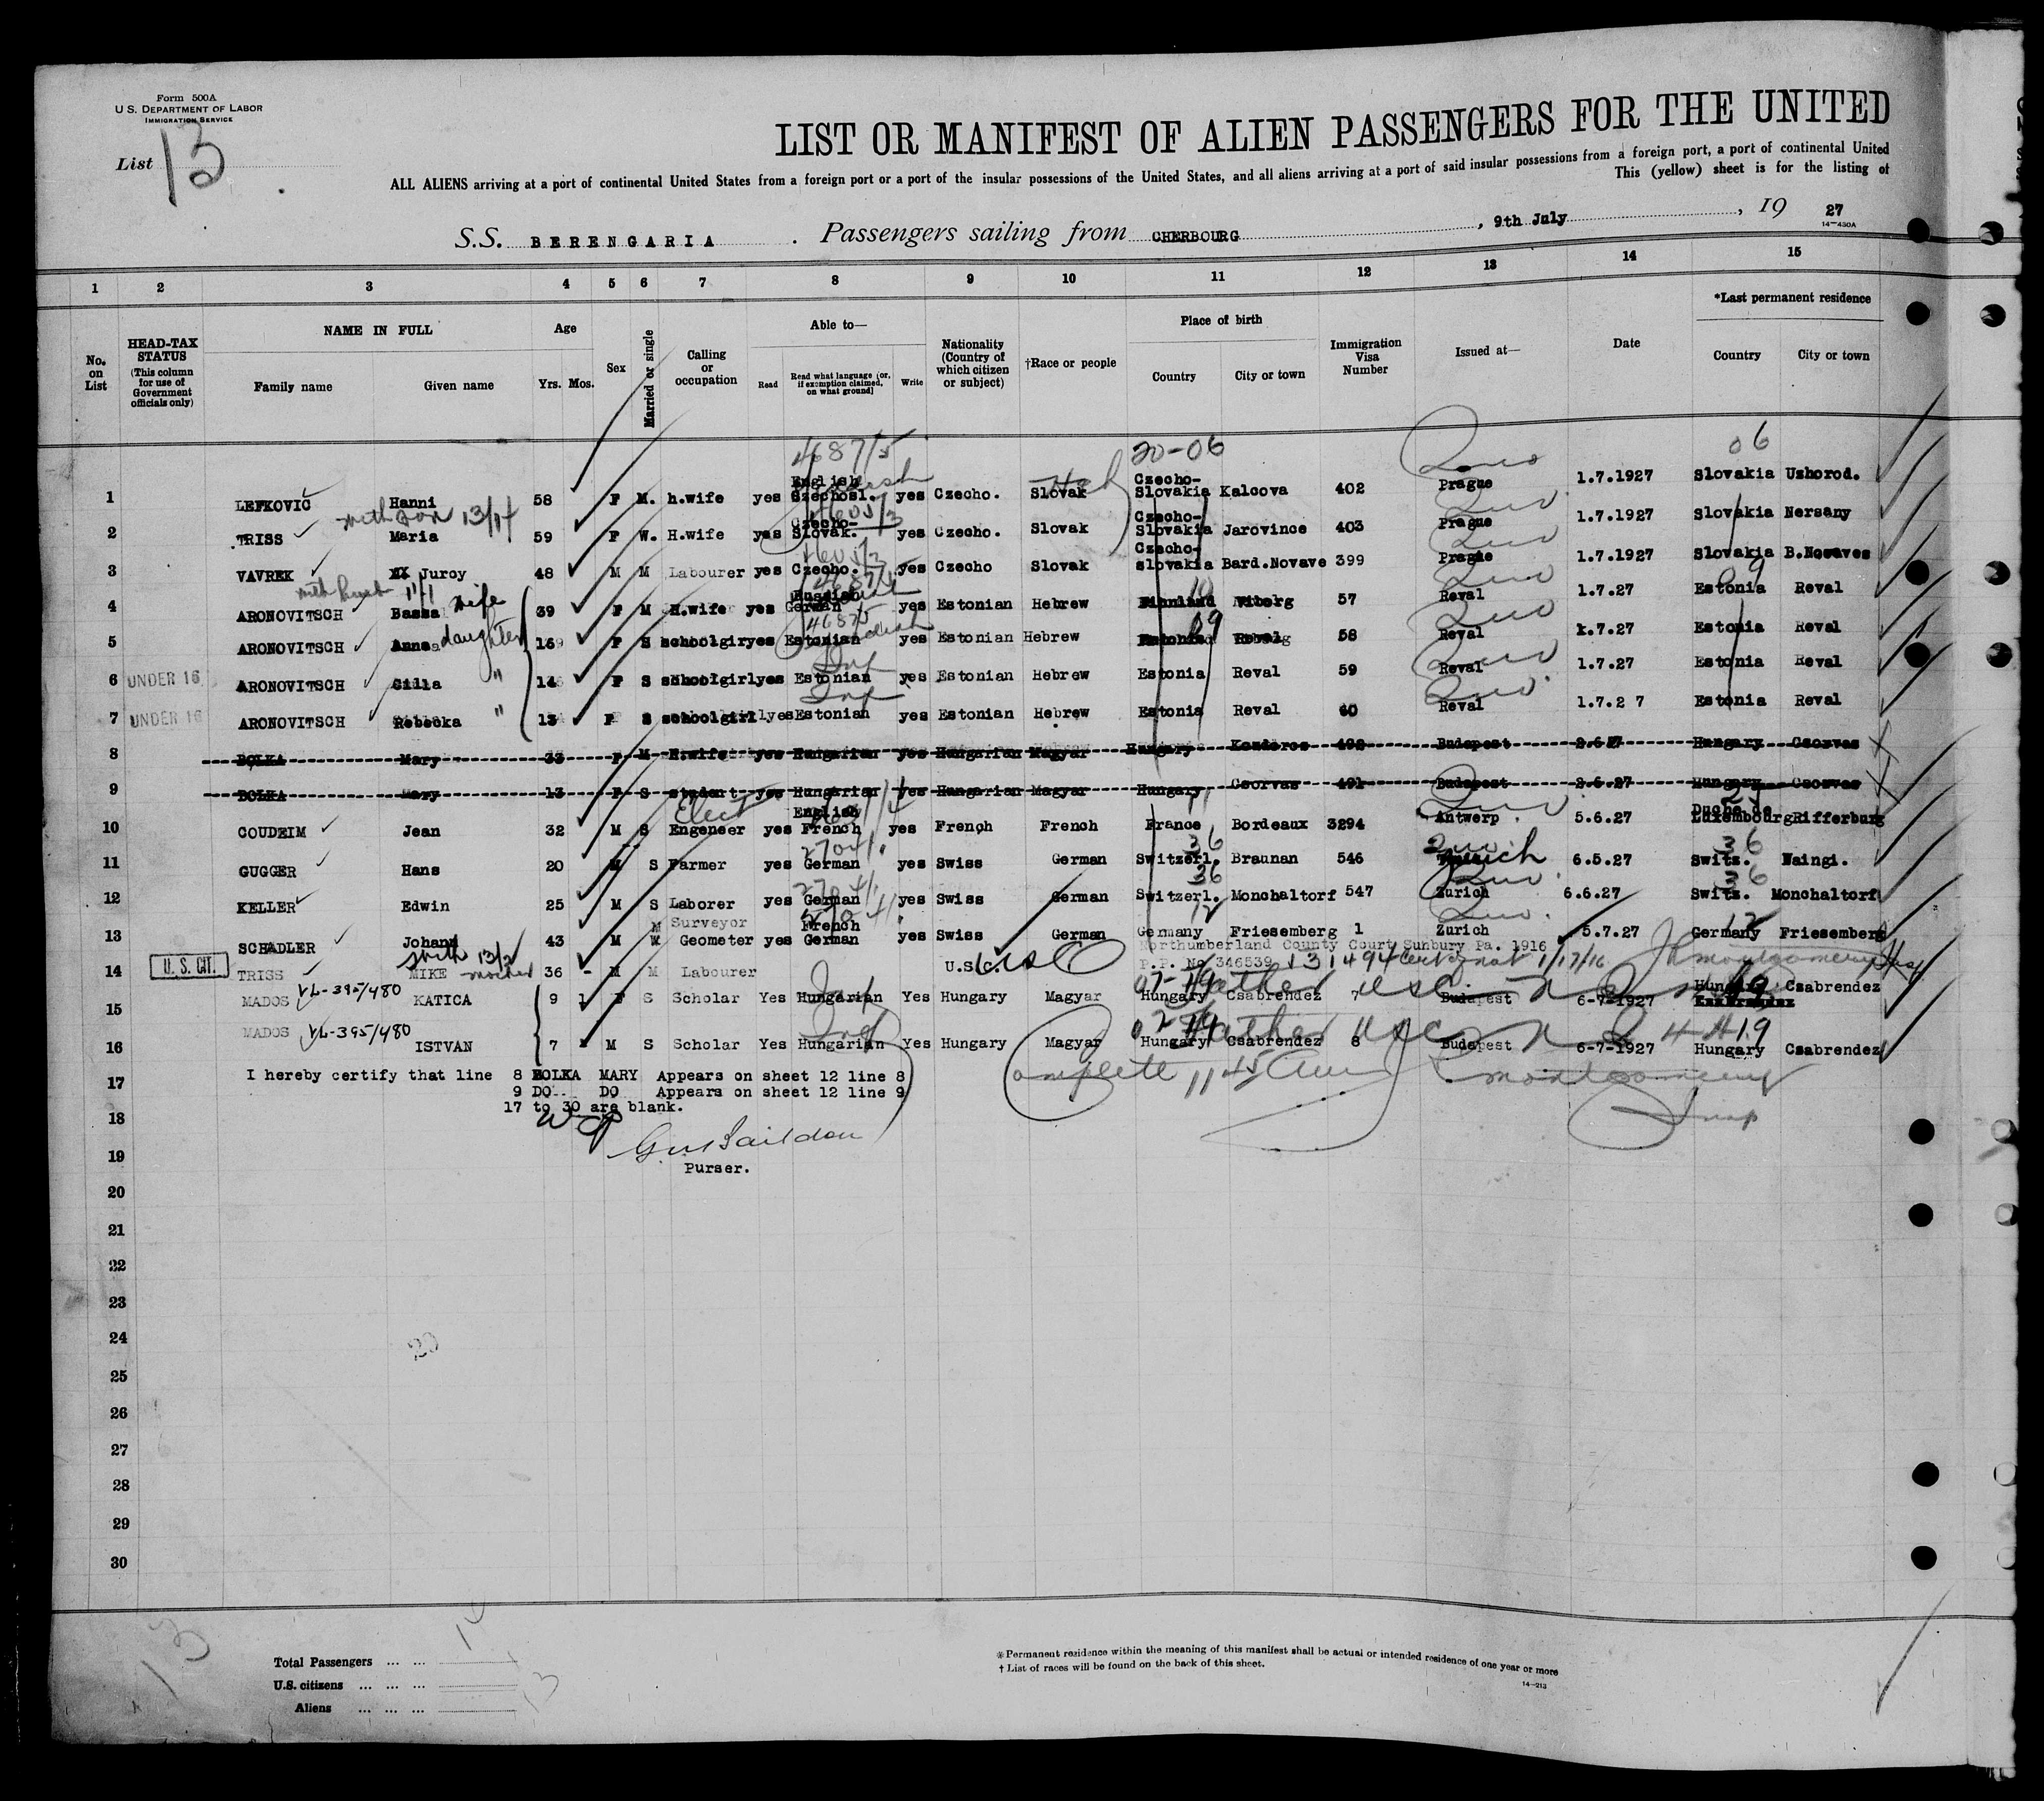 Form 500A
U S. DEPARTMENT OF LABOR
IMMIGRATION SERVICE
List 13
LIST OR MANIFEST OF ALIEN PASSENGERS FOR THE UNITED
ALL ALIENS arriving at a port of continental United States from a foreign port or a port of the insular possessions of the United States, and all aliens arriving at a port of said insular possessions from a foreign port, a port of continental United
This (yellow) sheet is for the listing of
S.S. BERENGARIA . Passengers sailing from CHERBOURG , 9th July , 19 27
14-430A
1 2 3 4 5 6 7 8 9 10 11 12 13 14 15
No. on List
HEAD-TAX STATUS (This column for use of Government officials only)
NAME IN FULL
Family name Given name
Age
Yrs. Mos.
Sex
Married or single
Calling or occupation
Able to—
Read Read what language (or, if exemption claimed, on what ground) Write
Nationality (Country of which citizen or subject)
†Race or people
Place of birth
Country City or town
Immigration Visa Number
Issued at—
Date
*Last permanent residence
Country City or town
4687/5 20-06 06
1 LEFKOVIC Hanni 58 F M. h.wife yes English Czechosl. yes Czecho. Slovak Czecho-Slovakia Kalcova 402 Prague 1.7.1927 Slovakia Uzhorod.
with son 13/14
2 TRISS Maria 59 F W. H.wife yes Czecho-Slovak. yes Czecho. Slovak Czecho-Slovakia Jarovince 403 Prague 1.7.1927 Slovakia Nersany
3 VAVREK Juroy 48 M M Labourer yes Czecho. yes Czecho Slovak Czecho-slovakia Bard.Novave 399 Prague 1.7.1927 Slovakia
4 ARONOVITSCH Bassa wife 39 F M H.wife yes German yes Estonian Hebrew Finnland Wiborg 57 Reval 1.7.27 Estonia Reval
5 ARONOVITSCH Anna daughter 16 F S schoolgir yes Estonian yes Estonian Hebrew Estonia Reval 58 Reval 1.7.27 Estonia Reval
6 UNDER 16 ARONOVITSCH Cilla " 14 F S schoolgirl yes Estonian yes Estonian Hebrew Estonia Reval 59 Reval 1.7.27 Estonia Reval
7 UNDER 16 ARONOVITSCH Rebecka " 13 F S schoolgirl yes Estonian yes Estonian Hebrew Estonia Reval 60 Reval 1.7.2 7 Estonia Reval
8 BOLKA Mary 33 F M H.wife yes Hungarian yes Hungarian Magyar Hungary Konderos 492 Budapest 2.6.27 Hungary Csorvas
9 BOLKA Mary 13 F S student yes Hungarian yes Hungarian Magyar Hungary Csorvas 491 Budapest 2.6.27 Hungary Csorvas
Elect
10 COUDEIM Jean 32 M S Engeneer yes English French yes French French France Bordeaux 3294 Antwerp 5.6.27 Duche de Luxembourg Rifferburg
11 GUGGER Hans 20 M S Farmer yes German yes Swiss German Switzerl. Braunan 546 Zurich 6.5.27 Switz. Naingi.
12 KELLER Edwin 25 M S Laborer yes German yes Swiss German Switzerl. Monchaltorf 547 Zurich 6.6.27 Switz. Monchaltorf
13 SCHADLER Johann 43 M M Surveyor Geometer yes French German yes Swiss German Germany Friesemberg 1 Zurich 5.7.27 Germany Friesemberg
Northumberland County Court Sunbury Pa. 1916
with 13/2 mother
14 U. S. CIT. TRISS MIKE 36 - M M Labourer U.S.C. P.P. No 346539 Montgomery
15 MADOS VL-395/480 KATICA 9 1 F S Scholar Yes Hungarian Yes Hungary Magyar Hungary Csabrendez 7 Budapest 6-7-1927 Hungary Csabrendez
16 MADOS VL-395/480 ISTVAN 7 - M S Scholar Yes Hungarian Yes Hungary Magyar Hungary Csabrendez 8 Budapest 6-7-1927 Hungary Csabrendez
17 I hereby certify that line 8 BOLKA MARY Appears on sheet 12 line 8
9 DO.. DO Appears on sheet 12 line 9
17 to 30 are blank.
Complete 11 45 am
Montgomery
Insp
18
19
Purser.
20
21
22
23
24
25
26
27
28
29
30
Total Passengers ... ...
U.S. citizens ... ... ...
Aliens ... ... ...
*Permanent residence within the meaning of this manifest shall be actual or intended residence of one year or more
† List of races will be found on the back of this sheet.
14-213
13